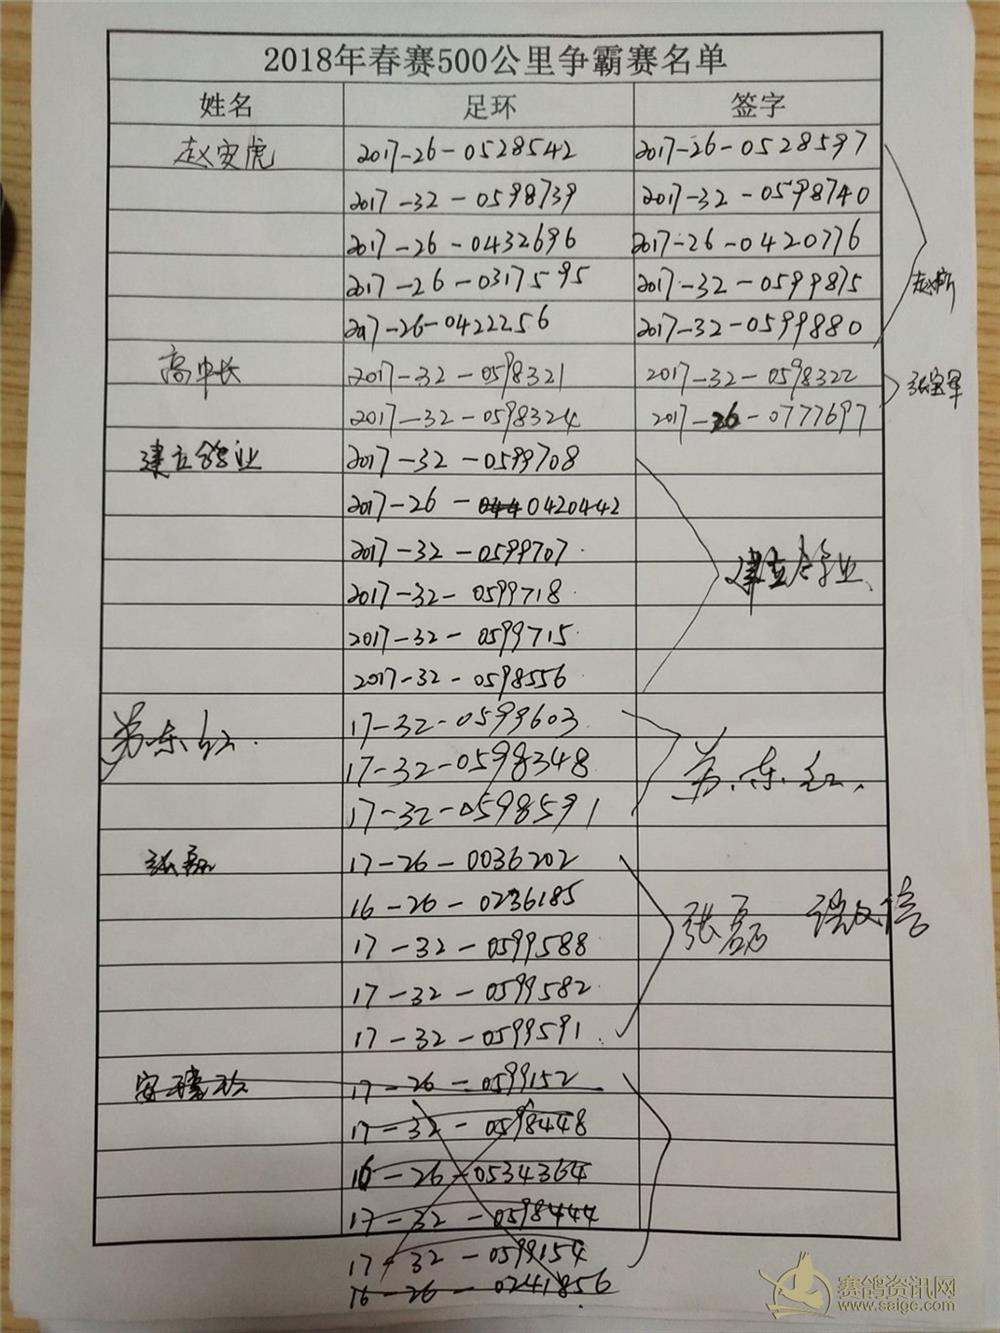 2018年春赛500公里争霸赛名单
姓名 足环 签字
赵安虎 2017-26-0528542 2017-26-0528597
2017-32-0598739 2017-32-0598740
2017-26-0432696 2017-26-0420776
2017-26-0317595 2017-32-0599875
2017-26-0422256 2017-32-0599880
高中长 2017-32-0598321 2017-32-0598322 张宝军
2017-32-0598324 2017-26-0777697
建立鸽业 2017-32-0599708
2017-26-0420442
2017-32-0599707 建立鸽业
2017-32-0599718
2017-32-0599715
2017-32-0598556
苏东红 17-32-0599603
17-32-0598348 苏东红
17-32-0598591
张磊 17-26-0036202
16-26-0236185 张磊
17-32-0599588
17-32-0599582
17-32-0599591
17-26-0599152
17-32-0598448
16-26-0534364
17-32-0598444
17-32-0599154
16-26-0241856
赛鸽资讯网
www.saige.com